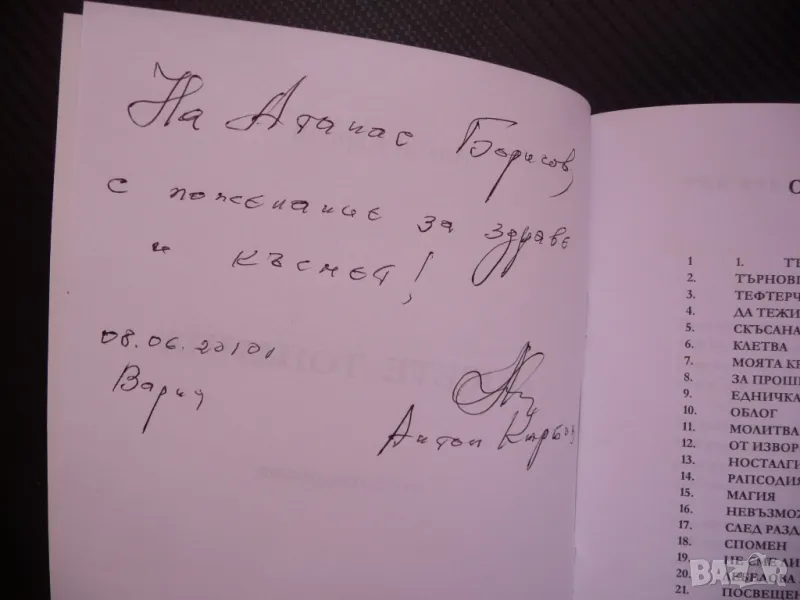 На Атанас Борисов,
с пожелание за здраве
и късмет!
08.06.2010г
Варна
Антон
1 1. ТЪ
2. ТЪРНОВГ
3. ТЕФТЕРЧ
4. ДА ТЕЖИ
5. СКЪСАНА
6. КЛЕТВА
7. МОЯТА КР
8. ЗА ПРОШ
9. ЕДНИЧКА
10. ОБЛОГ
11. МОЛИТВА
12. ОТ ИЗВОР
13. НОСТАЛГИ
14. РАПСОДИЯ
15. МАГИЯ
16. НЕВЪЗМОЖ
17. СЛЕД РАЗД
18. СПОМЕН
19. НЕ СМЕ ЛИ
20. ЛЕБЕДОВА
21. ПОСВЕЩЕН
BAZAR